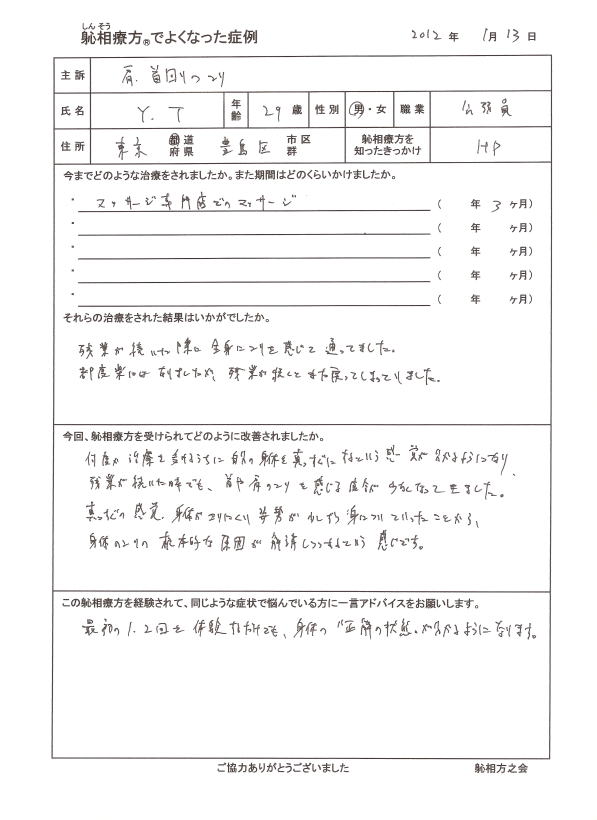 しんそう
躰相療方®でよくなった症例
2012 年 1月 13 日
主訴 肩、首回りのこり
氏名 Y.T 年齢 29 歳 性別 男・女 職業 公務員
住所 東京 都道府県 豊島区 市区群 躰相療方を知ったきっかけ HP
今までどのような治療をされましたか。また期間はどのくらいかけましたか。
・マッサージ専門店でのマッサージ ( 年 3 ヶ月)
・ ( 年 ヶ月)
・ ( 年 ヶ月)
・ ( 年 ヶ月)
・ ( 年 ヶ月)
それらの治療をされた結果はいかがでしたか。
残業が続いた際に全身にこりを感じて通ってました。
都度楽にはなりましたが、残業が続くとまた戻ってしまっていました。
今回、躰相療方を受けられてどのように改善されましたか。
何度か治療を重ねるうちに自分の身体を真っすぐになるという感覚が分かるようになり、
残業が続いた時でも、首や肩のこりを感じる度合が少なくなってきました。
真っすぐの感覚、身体がこりにくい姿勢が少しずつ身についていったことから、
身体のこりの根本的な原因が解消しつつあるという感じです。
この躰相療方を経験されて、同じような症状で悩んでいる方に一言アドバイスをお願いします。
最初の1、2回を体験するだけでも、身体の"正解の状態"が分かるようになります。
ご協力ありがとうございました
躰相方之会